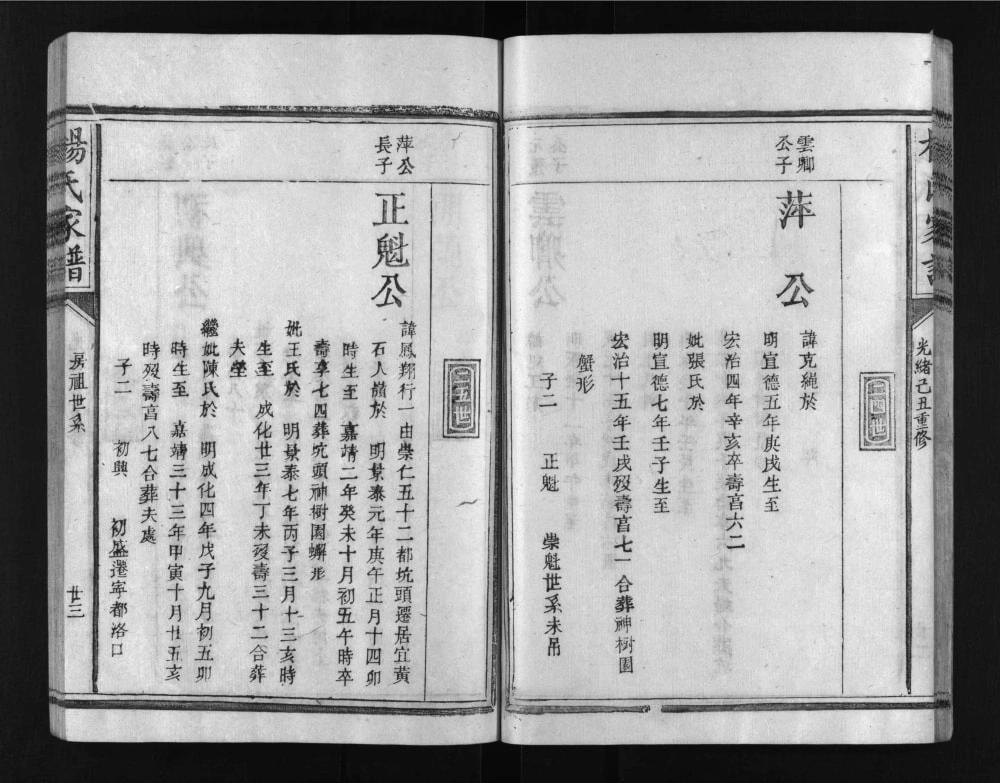 楊氏家譜
光緒己丑重修
四世
雲卿
公子
萍公
諱克繩於
明宣德五年庚戌生至
宏治四年辛亥卒壽高六二
妣張氏於
明宣德七年壬子生至
宏治十五年壬戌歿壽高七一合葬神樹園
蟹形
子二 正魁 崇魁世系未吊
五世
萍公
長子
正魁公
諱鳳翔行一由崇仁五十二都坑頭遷居宜黃
石人嶺於 明景泰元年庚午正月十四卯
時生至 嘉靖二年癸未十月初五午時卒
壽享七四葬坑頭神樹園蠏形
妣王氏於 明景泰七年丙子三月十三亥時
生至 成化廿三年丁未歿壽三十二合葬
夫塋
繼妣陳氏於 明成化四年戊子九月初五卯
時生至 嘉靖三十三年甲寅十月廿五亥
時歿壽高八七合葬夫處
子二 初興 初盛遷寧都洛口
楊氏家譜
房祖世系
廿三